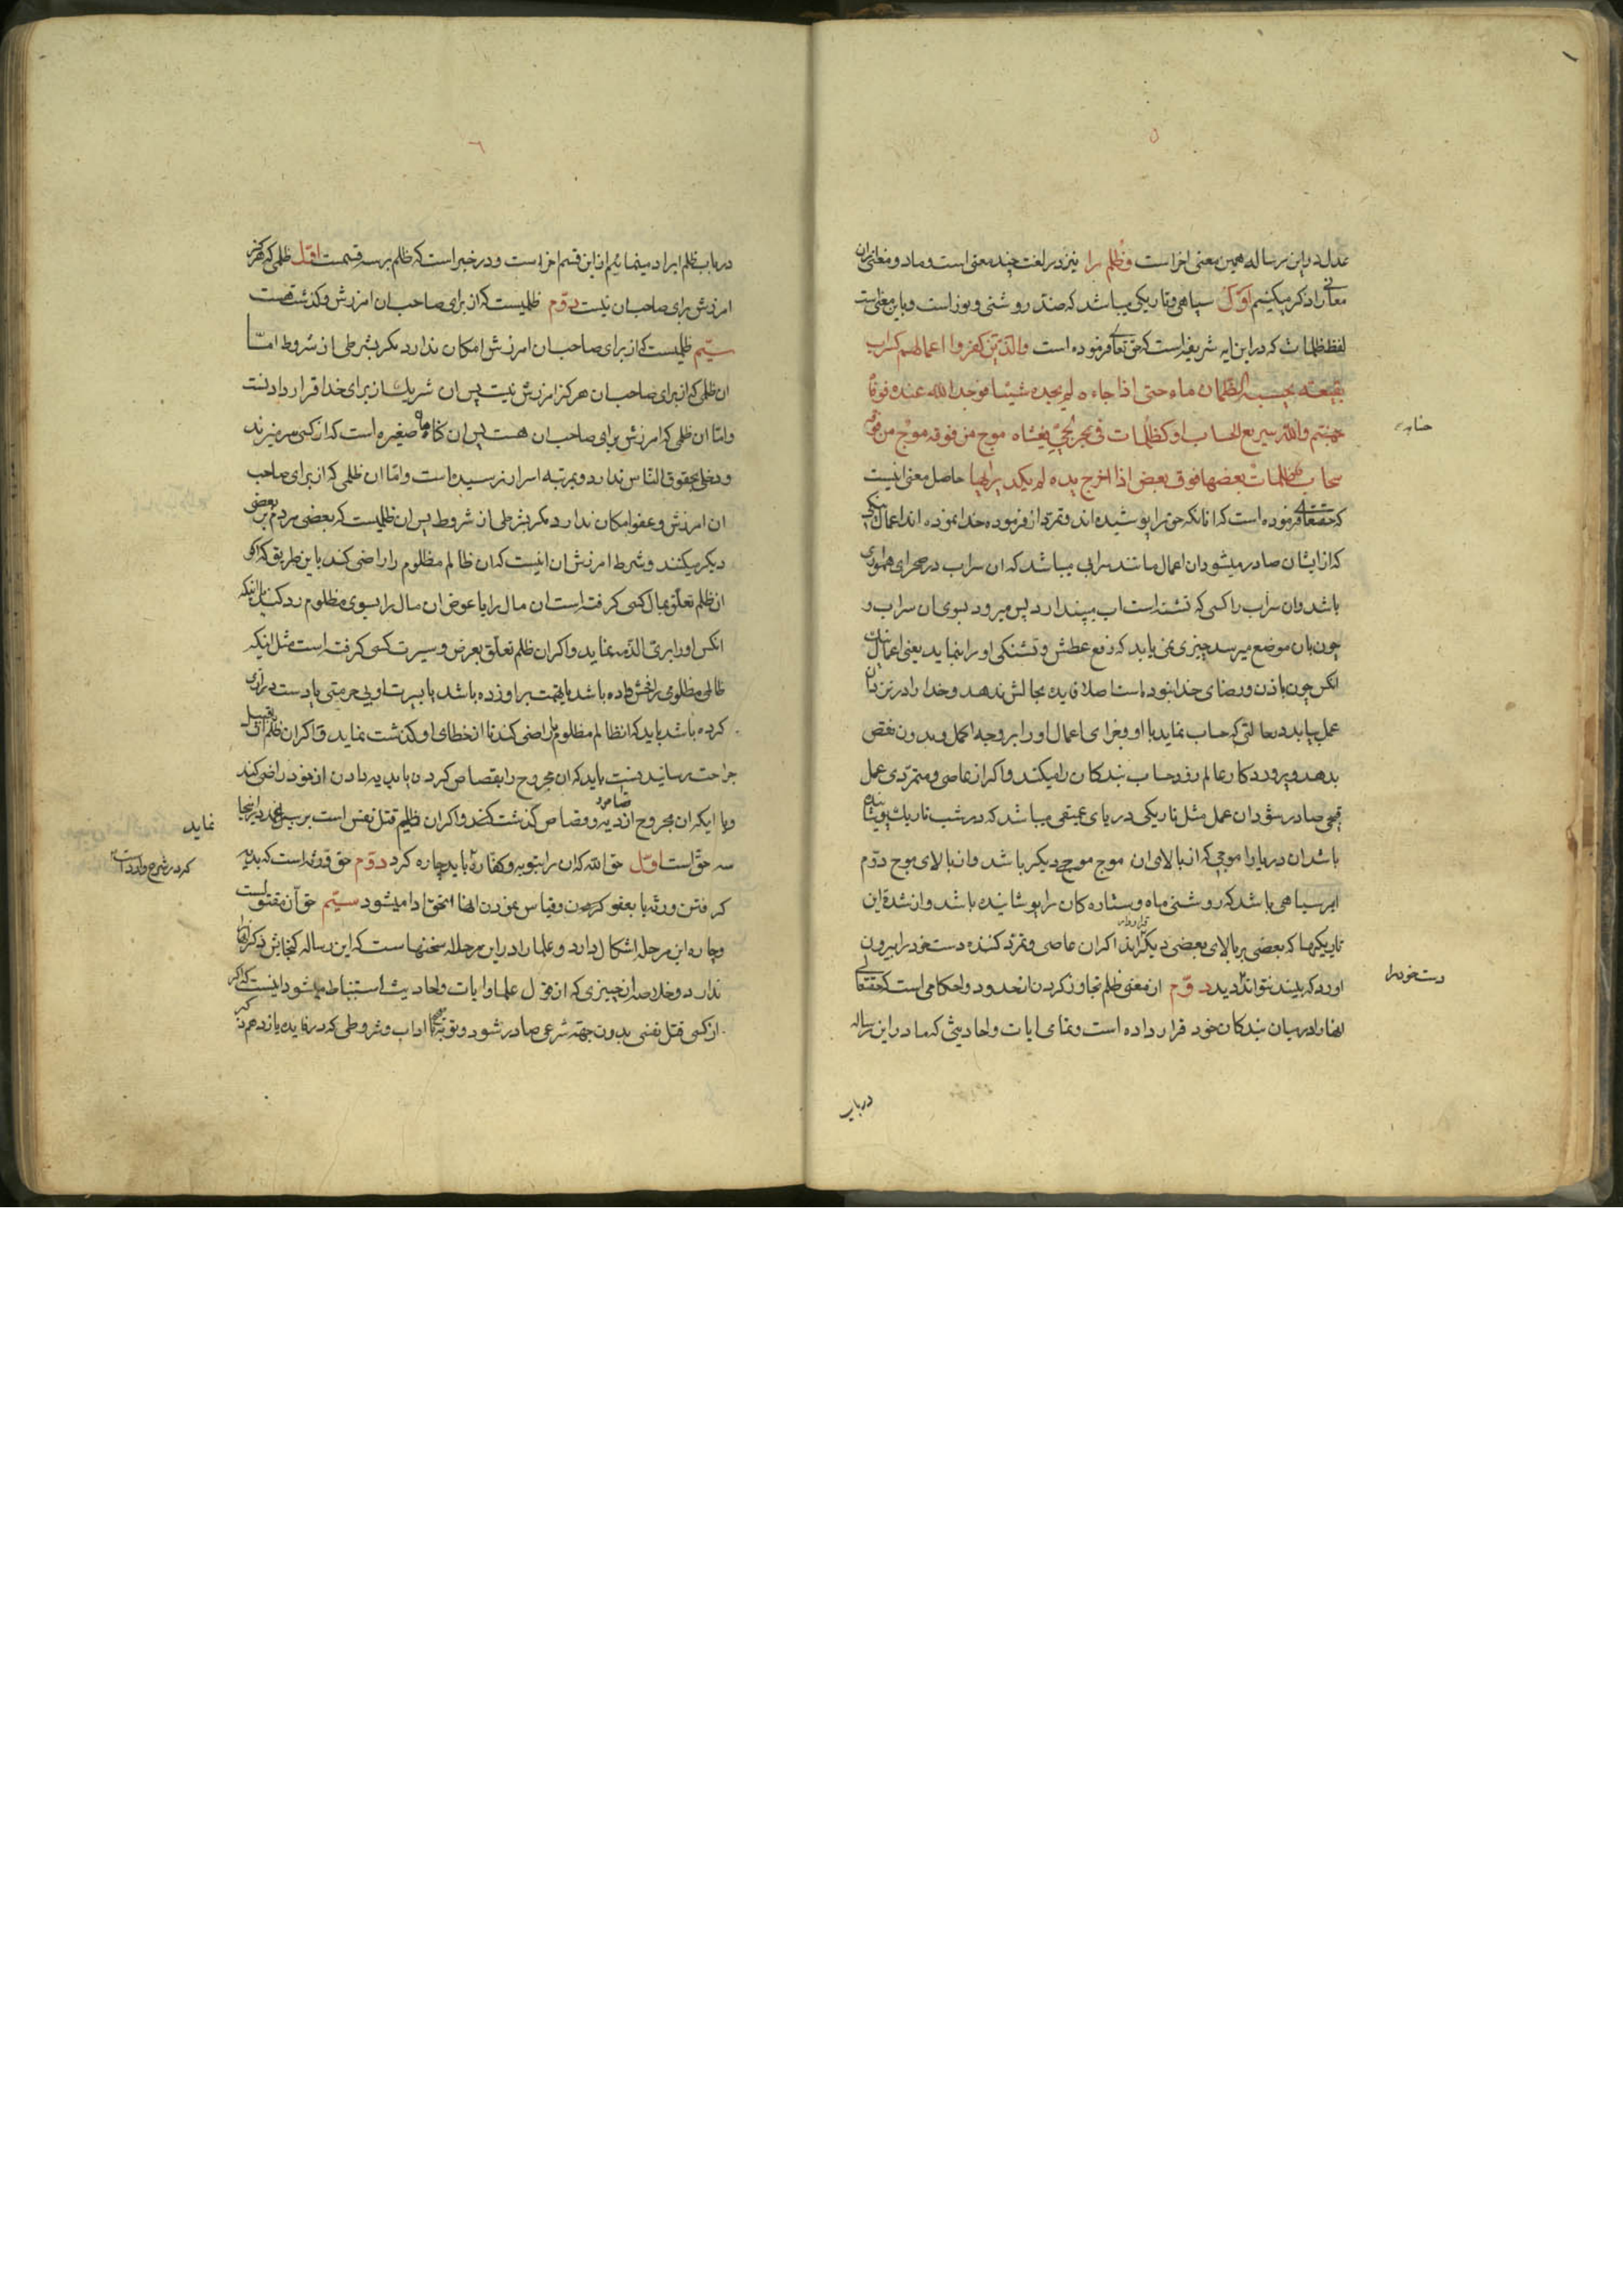 ۵
عدل در این رساله همین معنی اخر است و ظلم را نیز در لغت چند معنی است و ما دو معنی ازان
معانی را ذکر میکنیم اوّل سیاهی و تاریکی میباشد که ضدّ روشنی و نور است و باین معنی است
لفظ ظلمات که در این ایه شریفه است که حق تعالی فرموده است والّذین کفروا اعمالهم کسراب
بقیعه یحسبه الظمان ماء حتی اذا جاءه لم یجده شیئا فوجد الله عنده فوفّاه
حسابه
والله سریع الحساب او کظلمات فی بحر لجّی یغشاه موج من فوقه موج من فوقه
سحاب ظلمات بعضها فوق بعض اذا اخرج یده لم یکد یراها حاصل معنی اینست
که حقتعالی فرموده است که انانکه حق را پوشیده اند و تمرّد از فرموده خدا نموده اند اعمال نیکی
که از ایشان صادر میشود ان اعمال مانند سرابی میباشد که ان سراب در صحرای همواری
باشد وان سراب را کسی که تشنه است اب میپندارد پس میرود بسوی ان سراب و
چون بان موضع میرسد چیزی نمی یابد که رفع عطش و تشنکی او را بنماید یعنی اعمال نیک
انکس چون باذن و رضای خدا نبوده است اصلا فایده بحالش ندهد و خدا را در نزد ان
عمل بیابد در حالتی که حساب نماید با او و جزای اعمال او را بر وجه اکمل و بدون نقص
بدهد و پروردکار عالم زود حساب بندکان را میکند و اکر از عاصی و متمرّدی عمل
قبیحی صادر شود ان عمل مثل تاریکی دریای عمیقی میباشد که در شب تاریک پوشانیده
باشد ان دریا را موجی که از بالای ان موج موج دیکر باشد و از بالای موج دوّم
ابر سیاهی باشد که روشنی ماه و ستاره کان را پوشانیده باشد و از شدة این
تاریکیها که بعضی بر بالای بعضی دیکر قرار دارند اکر ان عاصی و تمرّد کننده دست خود را بیرون
دست خود را
اورد که ببیند نتواند دید دوّم از معنی ظلم تجاوز کردن از حدود و احکامی است که حقتعالی
انها را در میان بندکان خود قرار داده است و تمامی ایات و احادیثی که ما در این رساله
در باب
۶
در باب ظلم ایراد مینمائیم از این قسم اخر است و در خبر است که ظلم بر سه قسمت اوّل ظلمی که هرکز
امرزش برای صاحب ان نیست دوّم ظلمیست که از برای صاحب ان امرزش و کذشت هست
سیّم ظلمیست که از برای صاحب ان امرزش امکان ندارد مکر بشرطی از شروط امّا
ان ظلمی که از برای صاحب ان هرکز امرزش نیست پس ان شریک از برای خدا قرار دادنست
و امّا ان ظلمی که امرزش برای صاحب ان هست پس ان کناه صغیره است که از کسی سر میزند
و دخلی بحقوق النّاس ندارد و بمرتبه اسرار نرسیده است و امّا ان ظلمی که از برای صاحب
ان امرزش و عفو امکان ندارد مکر بشرطی از شروط پس ان ظلمیست که بعضی مردم بر بعضی
دیکر میکنند و شرط امرزش ان اینست که ان ظالم مظلوم را راضی کند باین طریق که اکر
ان ظلم تعلّق بمال کسی کرفته است ان مال را یا عوض ان مال را بسوی مظلوم رد کند یا اینکه
انکس او را بریّ الذّمه نماید و اکر ان ظلم تعلّق بعرض و سیرت کسی کرفته است مثل اینکه
ظالمی مظلومی را فحش داده باشد یا تهمت بر او زده باشد یا بسیرت او بی حرمتی یا دست درازی
کرده باشد باید که انظالم مظلوم را راضی کند تا از خطای او کذشت نماید و اکر ان ظلم از قبیل
جراحت رسانیدنست باید که ان مجروح را بقصاص کردن یا بدیه دادن از خود راضی کند
و یا اینکه ان مجروح از دیه و قصاص کذشت کند و اکر ان ظلم قتل نفس است پس در اینجا
نماید
سه حقّ است اوّل حق الله که ان را بتوبه و کفّاره باید چاره کرد دوّم حق ورثه است که بدیه
که در شرع وارد است
کرفتن ورثه یا بعفو کردن و قصاص نمودن انها انحقّ ادا میشود سیّم حق آن مقتولست
و چاره این مرحله اشکال دارد و علما را در این مرحله سخنها ست که این رساله کنجایش ذکر انها
ندارد و خلاصه ان چیزی که از قول علما و ایات و احادیث استنباط میشود اینست که اکر
از کسی قتل نفسی بدون جهة شرعی صادر شود و توبه با اداب و شروطی که در فایده یازدهم ذکر